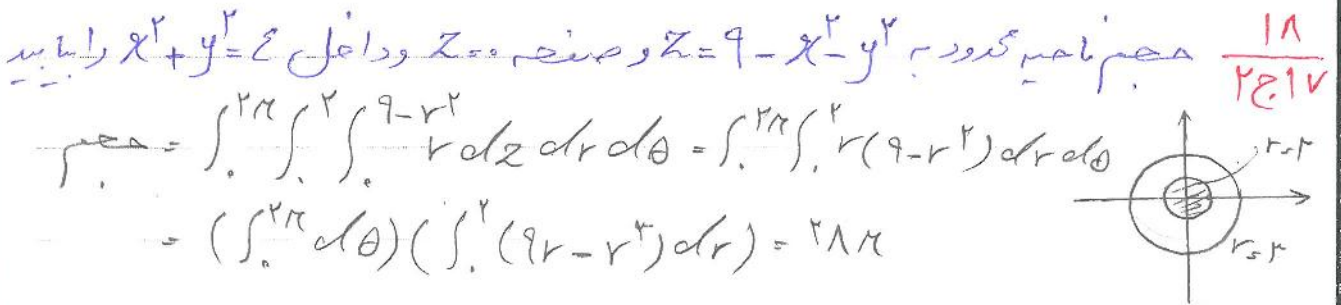 ۱۸/۱۷ج۲ حجم ناحیه محدود به z=۹-x^۲-y^۲ و صفحه z=۰ و داخل x^۲+y^۲=٤ را بیابید
حجم = ∫_۰^{۲π} ∫_۰^۲ ∫_۰^{۹-r^۲} r dz dr dθ = ∫_۰^{۲π} ∫_۰^۲ r(۹-r^۲) dr dθ
= (∫_۰^{۲π} dθ)(∫_۰^۲ (۹r-r^۳) dr) = ۲۸π
r=۲
r=۳